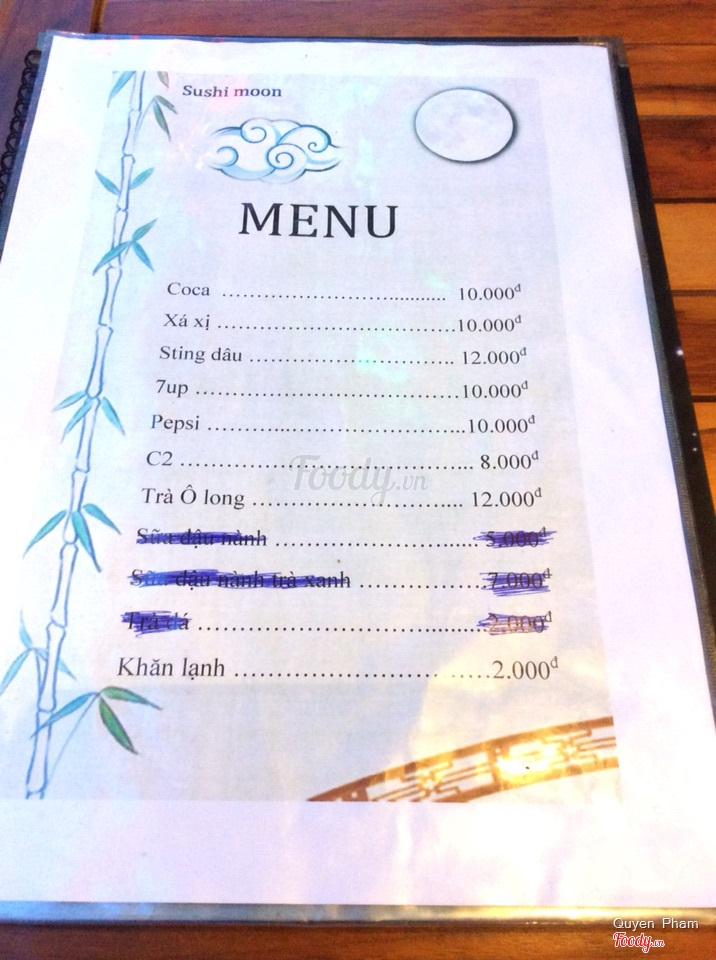 Sushi moon
MENU
Coca ........................................ 10.000đ
Xá xị ........................................10.000đ
Sting dâu .................................... 12.000đ
7up ..........................................10.000đ
Pepsi ........................................10.000đ
C2 ........................................... 8.000đ
Trà Ô long ................................... 12.000đ
Sữa đậu nành ................................. 5.000đ
Sữa đậu nành trà xanh ....................7.000đ
Trà đá .......................................2.000đ
Khăn lạnh ....................................2.000đ
Foody.vn
Quyen Pham
Foody.vn